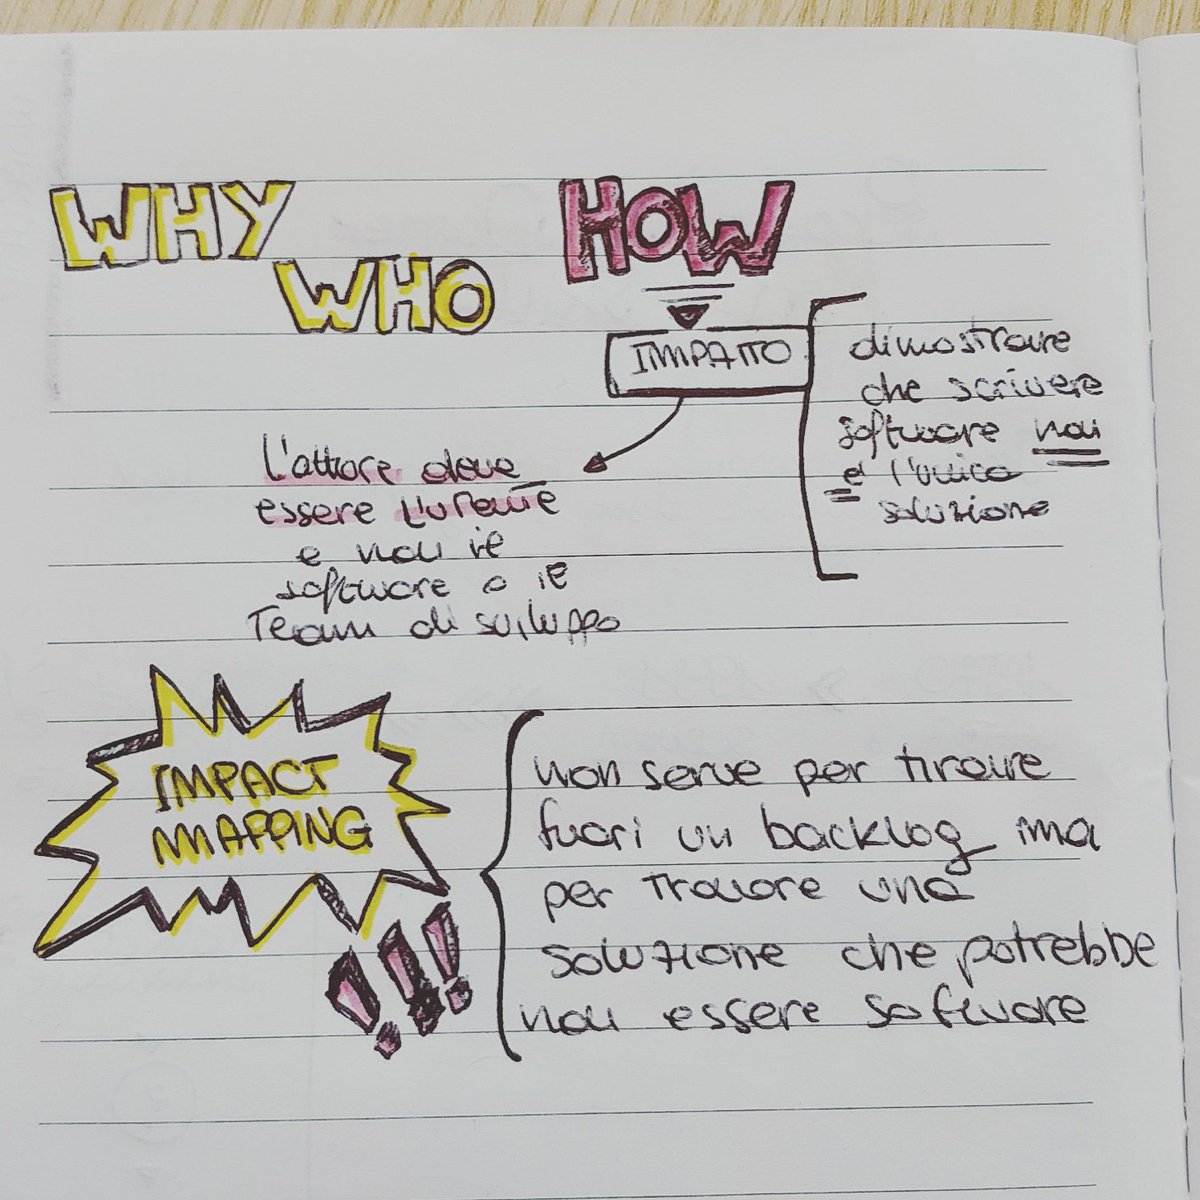 WHY
WHO
HOW
IMPATTO
dimostrare
che scrivere
software non
è l'unica
soluzione
L'attore deve
essere l'utente
e non il
software o il
Team di sviluppo
IMPACT
MAPPING
!!!
non serve per tirare
fuori un backlog ma
per trovare una
soluzione che potrebbe
non essere software